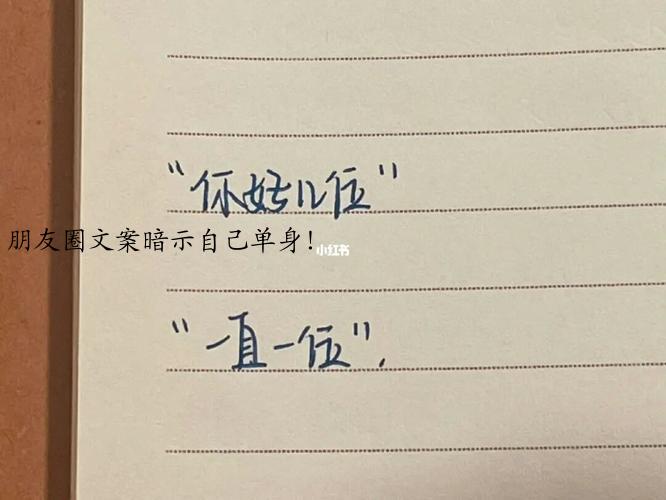 “你好几位”
朋友圈文案暗示自己单身!
小红书
“一直一位”.